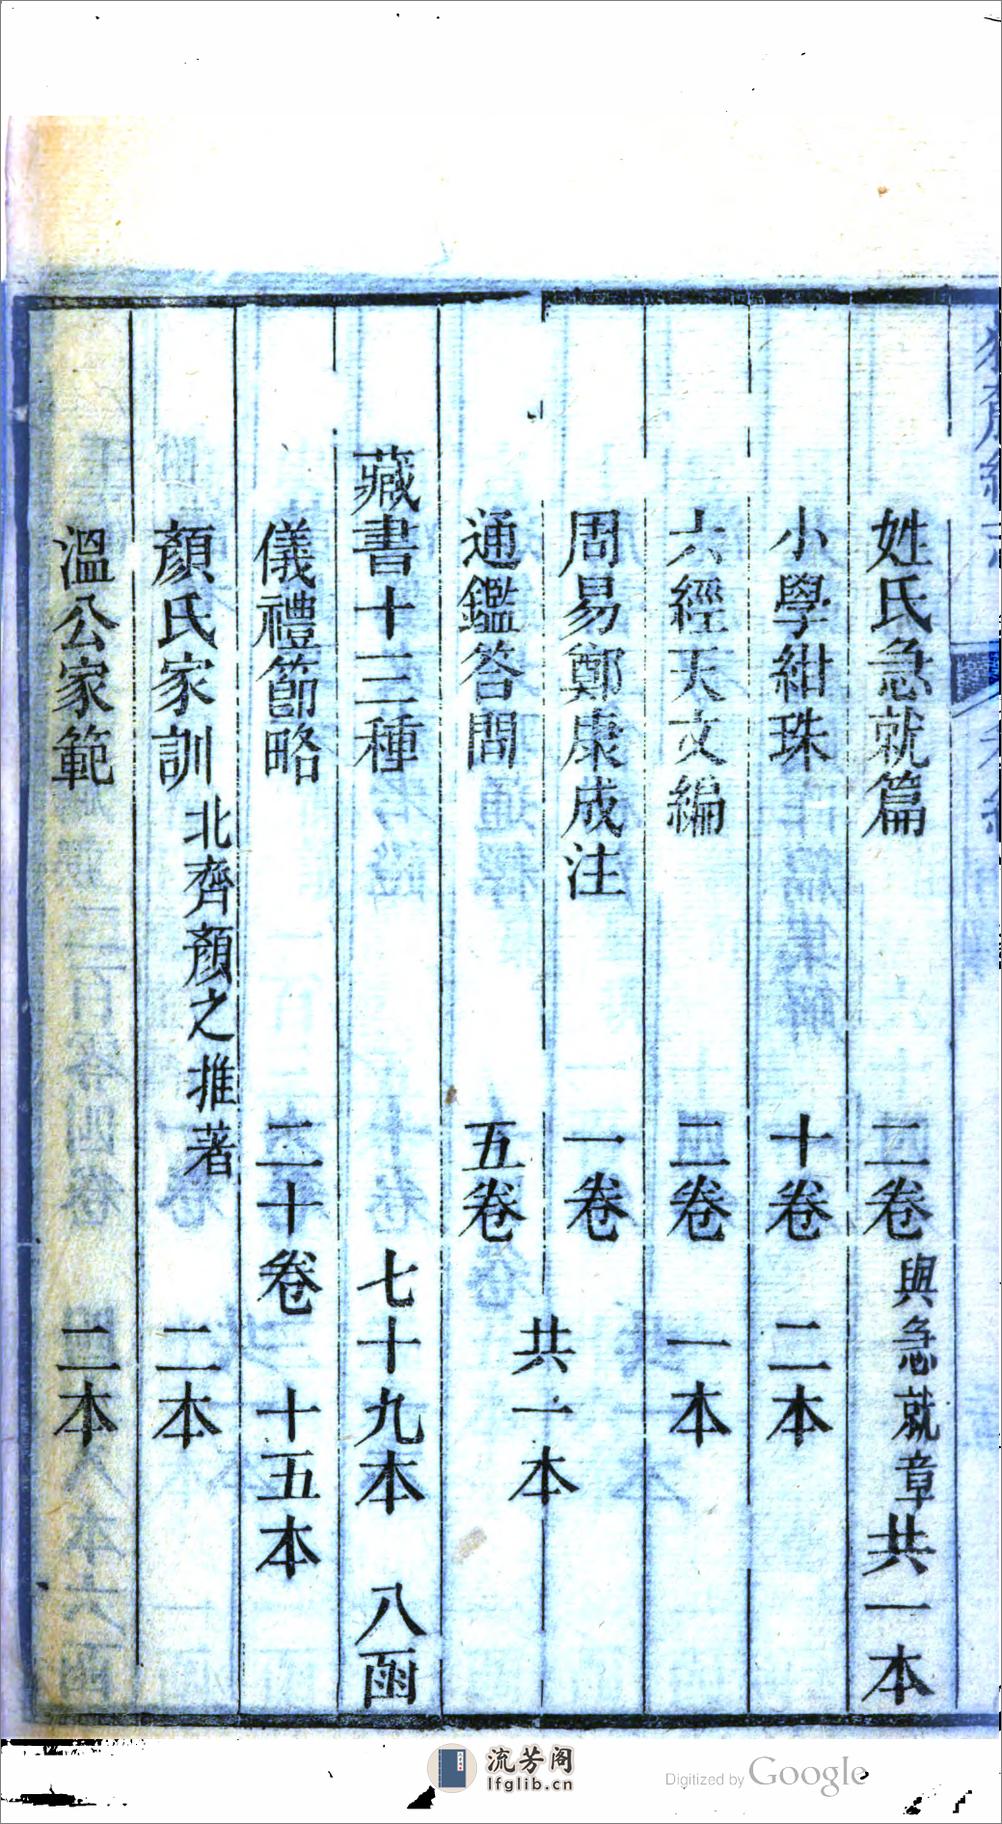 姓氏急就篇 二卷 與急就章共一本
小學紺珠 十卷 二本
六經天文編 二卷 一本
周易鄭康成注 一卷
通鑑答問 五卷 共一本
藏書十三種 七十九本 八函
儀禮節略 二十卷 十五本
顏氏家訓 北齊顏之推著 二本
溫公家範 二本
流芳阁
lfglib.cn
Digitized by Google